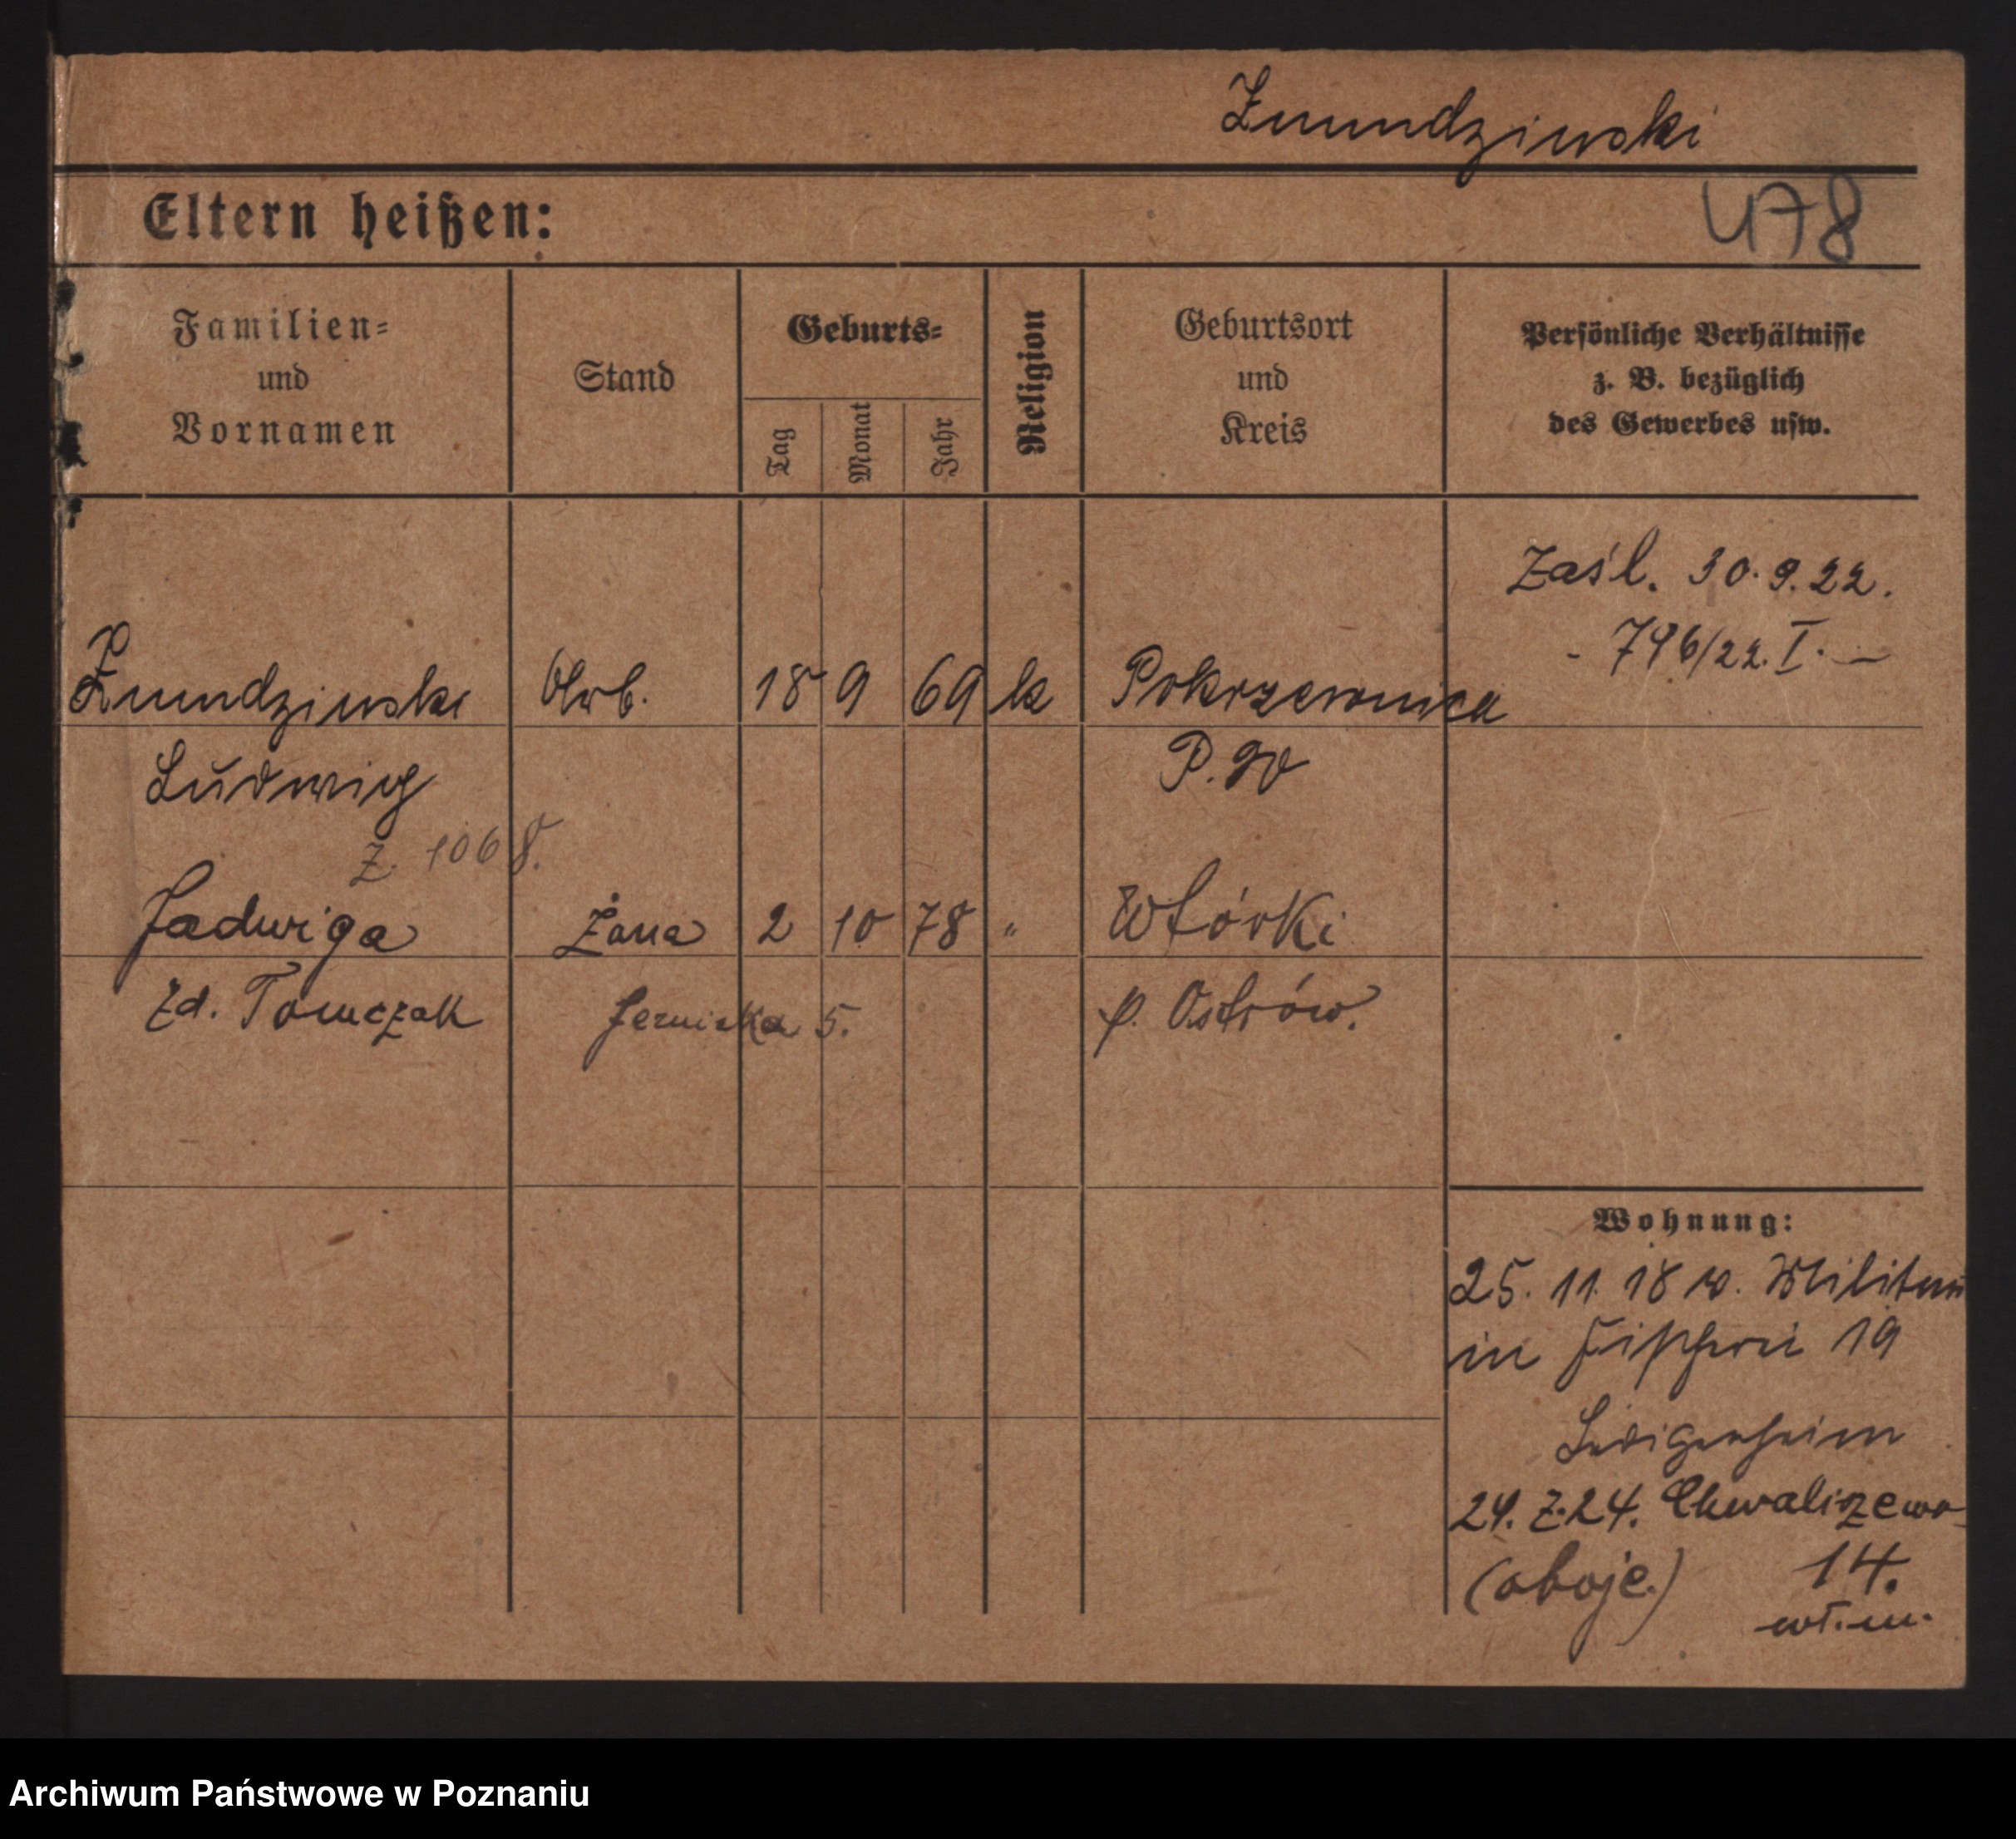 Zmundzinski
478
Eltern heißen:
Familien=
und
Vornamen
Stand
Geburts=
Tag
Monat
Jahr
Religion
Geburtsort
und
Kreis
Persönliche Verhältnisse
z. B. bezüglich
des Gewerbes usw.
Zaśl. 30.9.22.
- 796/22. I. -
Zmundzinski Arb. 18 9 69 k Pokrzywnica
Ludwig P. Go
Z. 1068.
Jadwiga Żona 2 10 78 " Wtórki
Zd. Tomczak 5. p. Ostrów.
Wohnung:
25. 11. 18 v. Militär
in Fischerei 19
Ledigenheim
24. Z. 24. Chwaliszewo
(oboje.) 14.
wł. m.
Archiwum Państwowe w Poznaniu